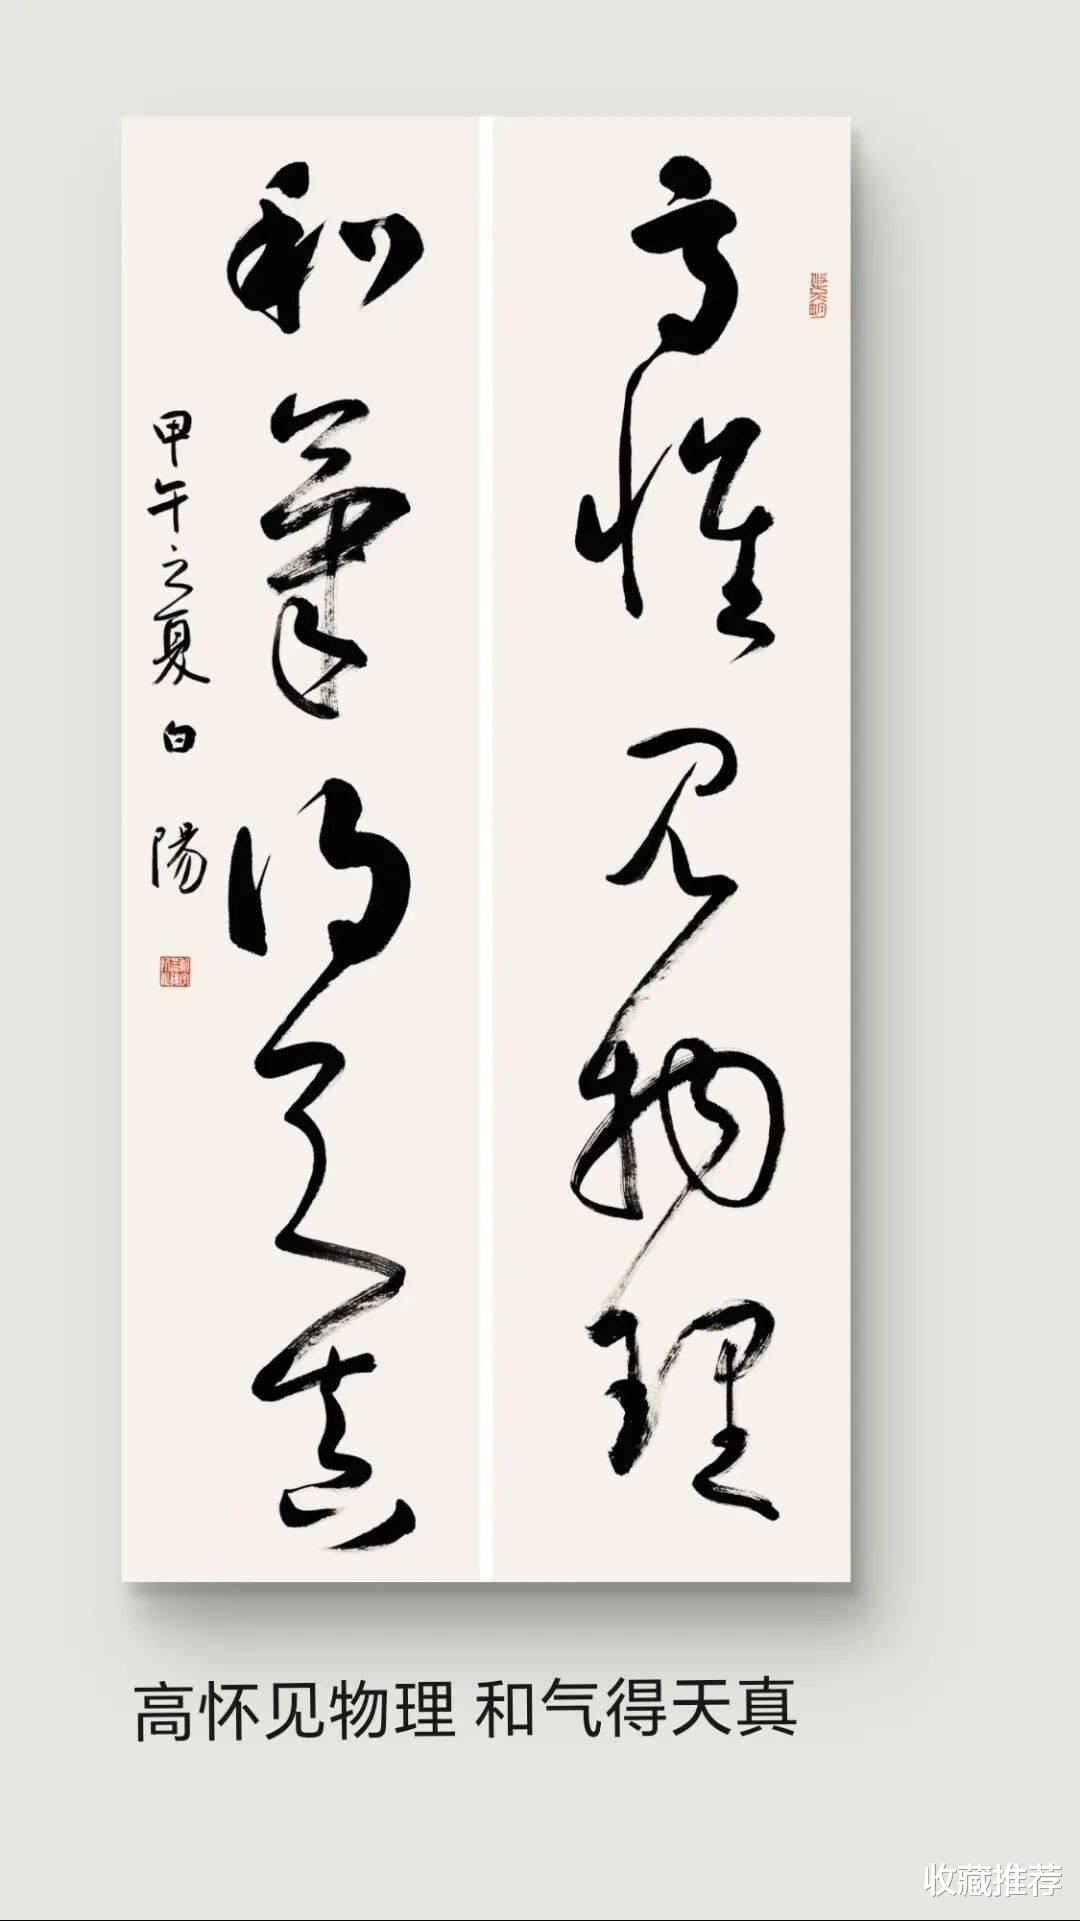 高懷見物理
和氣得天真
甲午之夏白陽
高怀见物理 和气得天真
收藏推荐